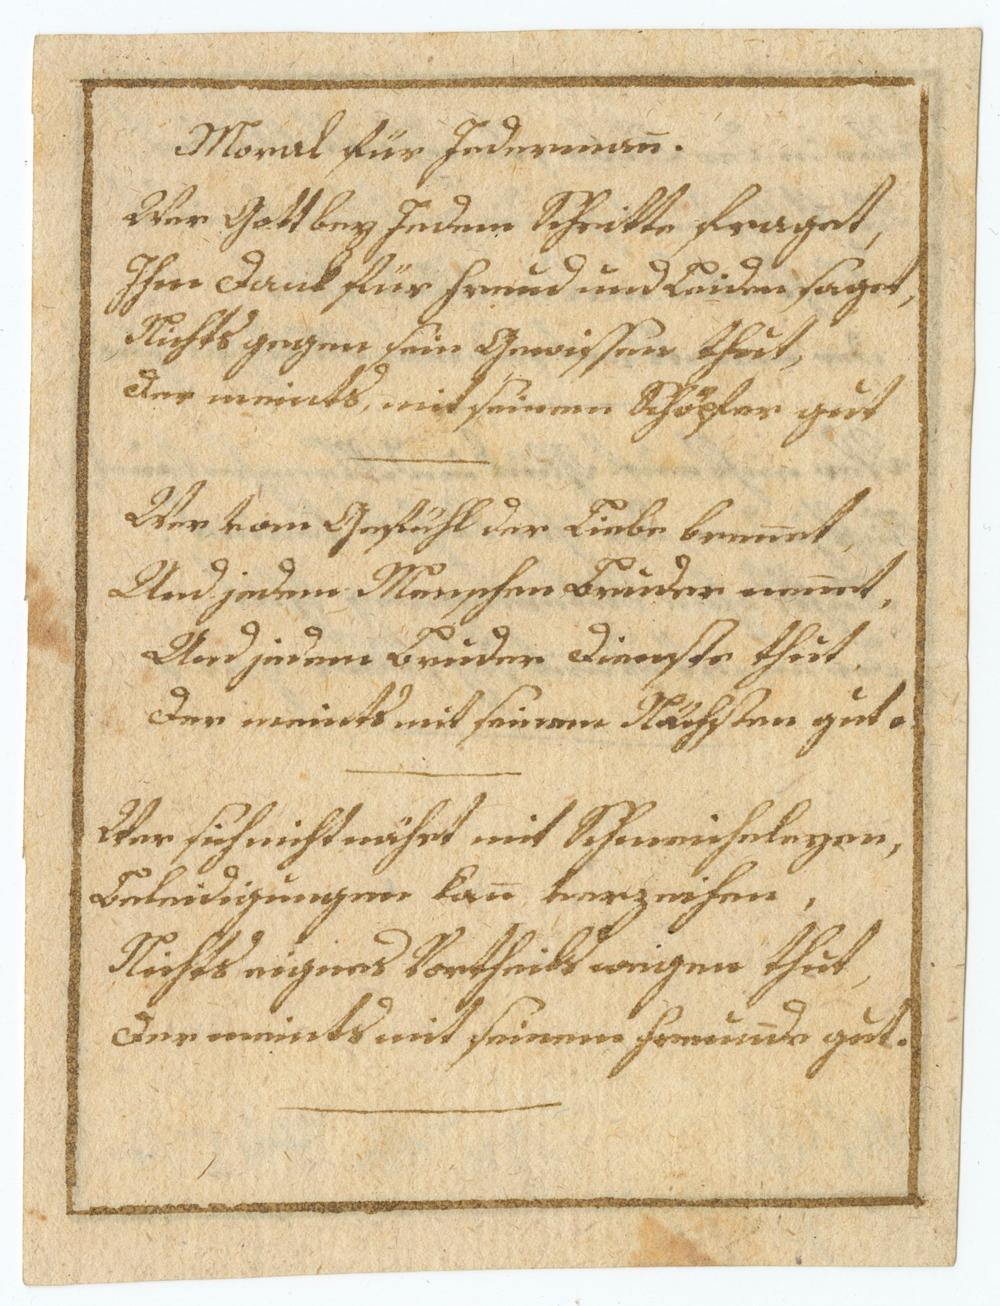 Moral für Jedermañ.
Wer Gott bey Jedem Schritte fraget,
Ihm Dank für Freud und Leiden saget,
Nichts gegen sein Gewissen thut,
Der meints, mit seinem Schöpfer gut
Wer vom Gefühl der Liebe breñet,
Und jedem Menschen Bruder neñet,
Und jedem Bruder Dienste thut.
Der meints mit seinem Nächsten gut.
Wer sich nicht nährt mit Schmeicheleyen,
Beleidigungen kañ verzeihen,
Nichts eignes Vortheils wegen thut,
Der meints mit seinem Freunde gut.